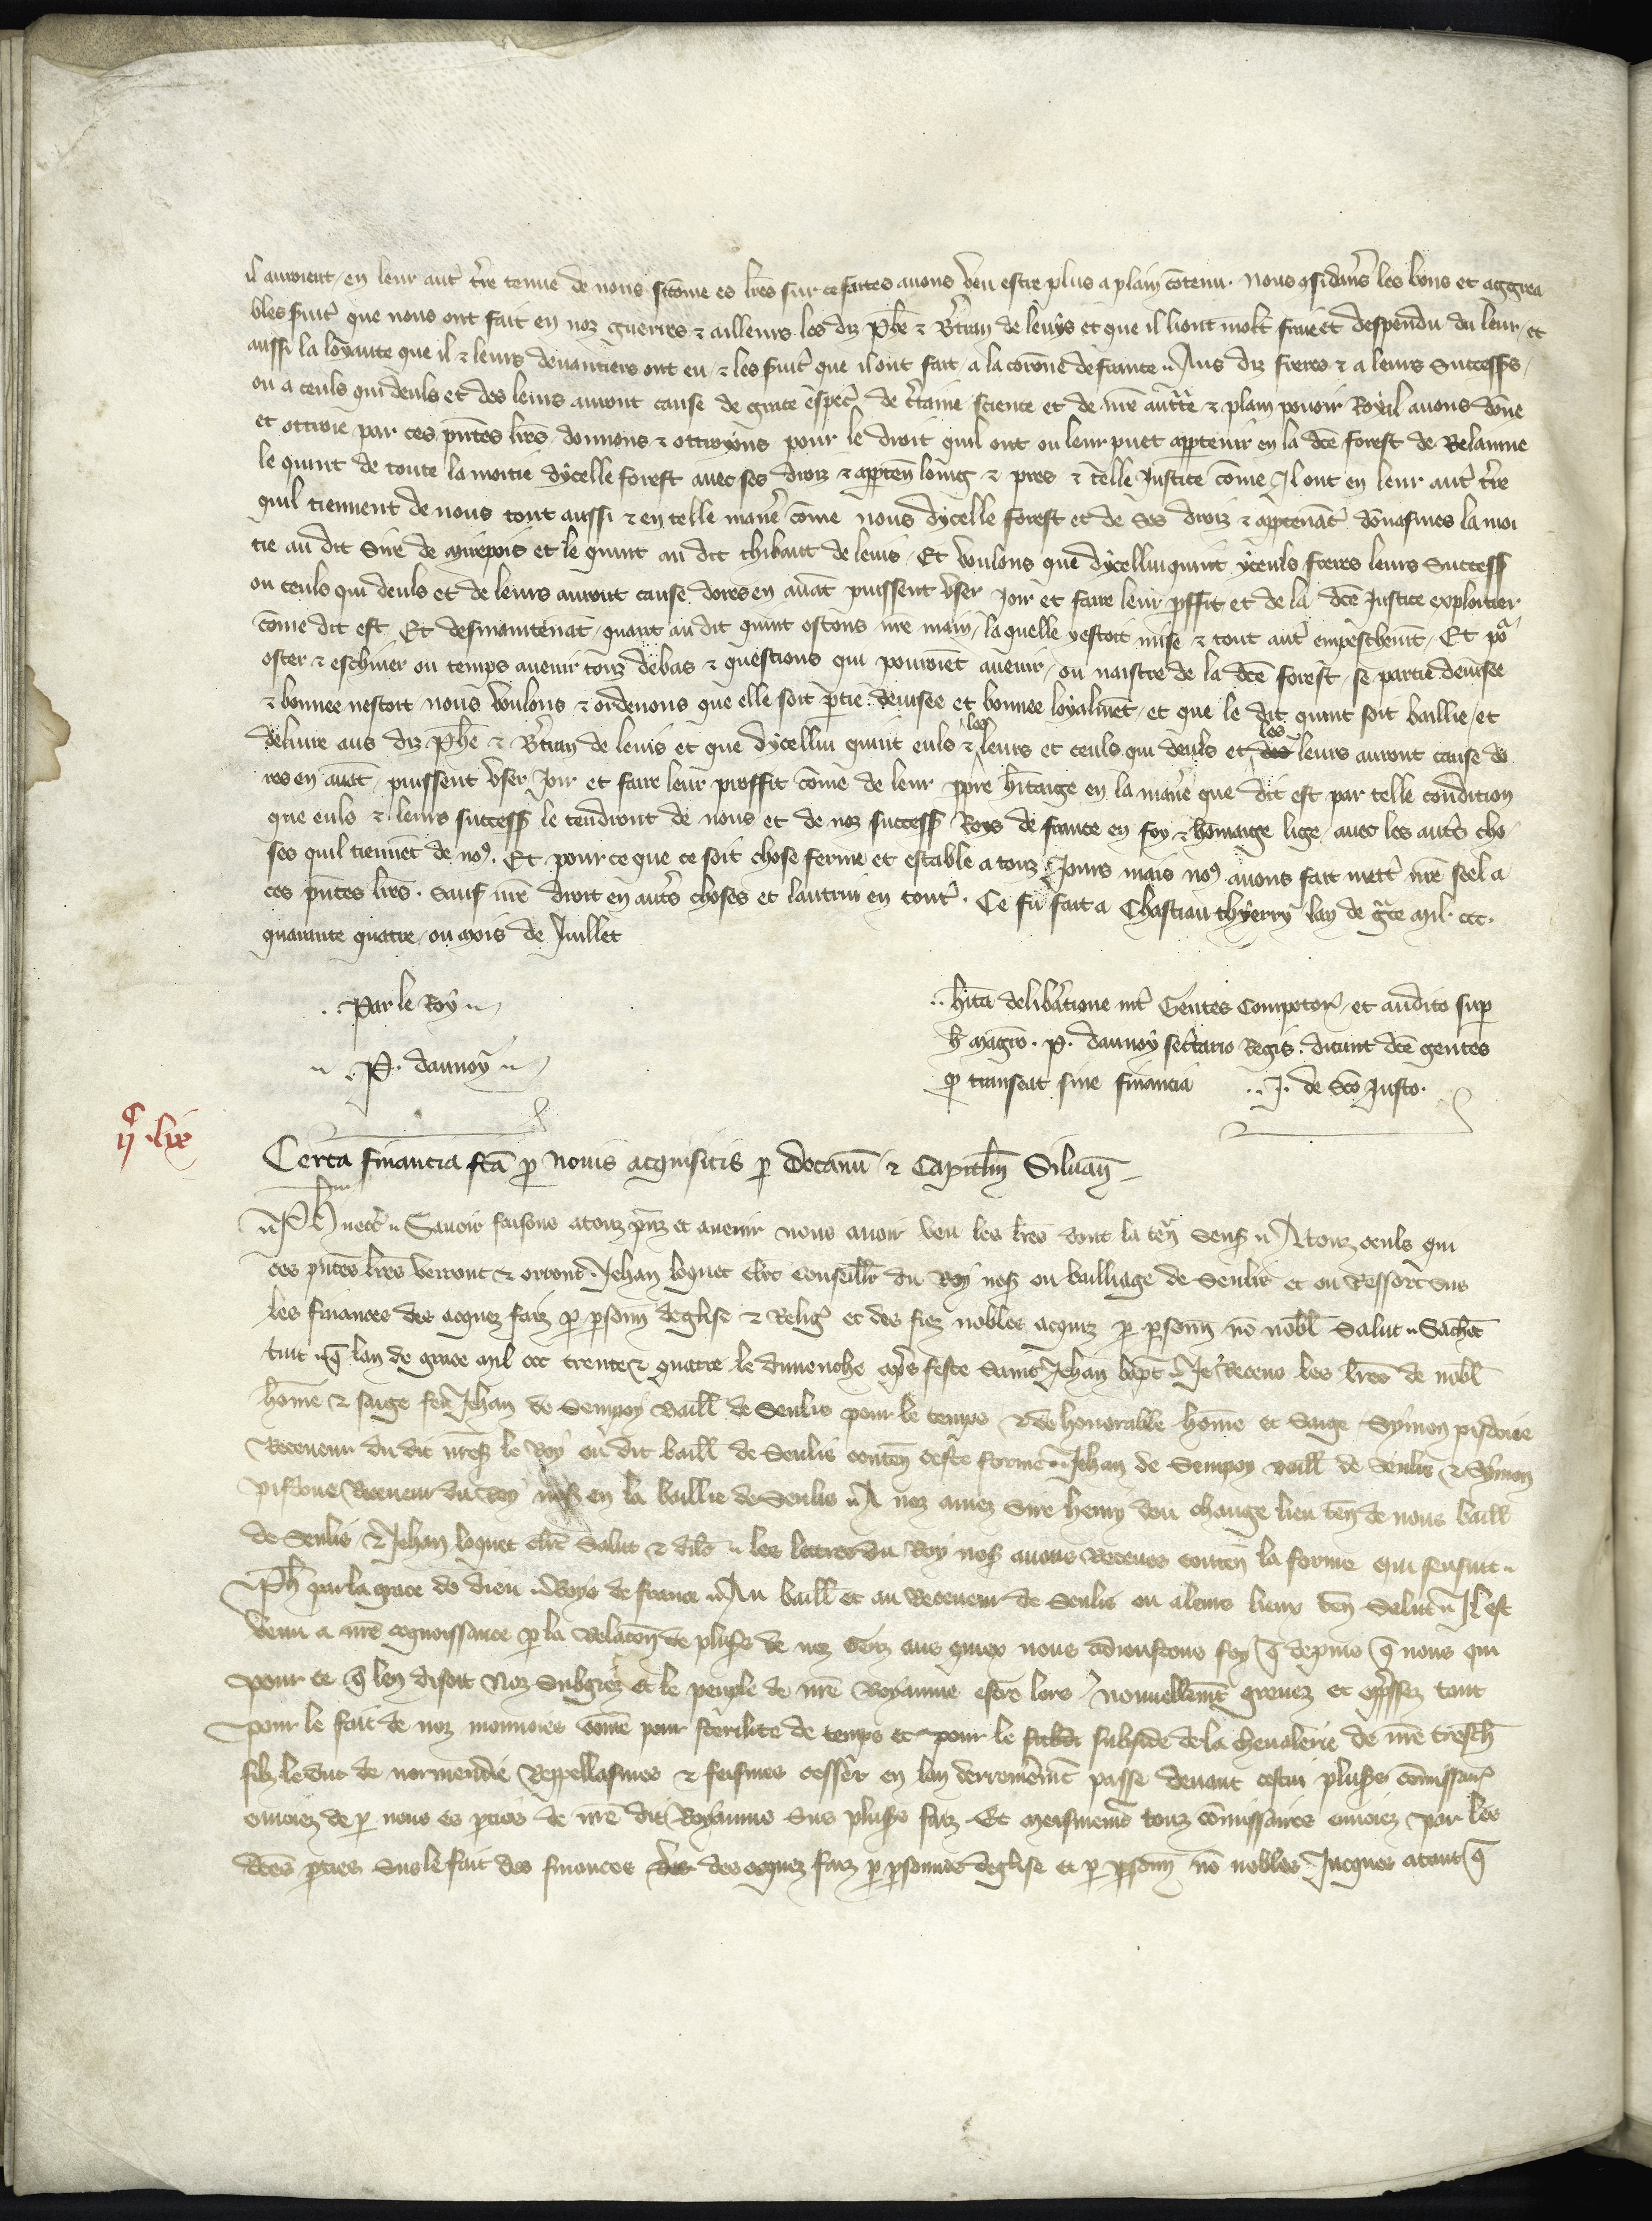 il auroient en leur aut̾ t̾re tenue de nous sicōme es lr̄es sur ce faites auons veu estre plus a plain cōtenu. Nous ɔsidan̄s les bons et aggrea
bles s̾uic̾ que nous ont fait en noz guerres ⁊ ailleurs les diz Ph̄e ⁊ B̾tran de leuys et que il lont molt fraiet despendu du leur, et
aussi la loyaute que il ⁊ leurs deuantiers ont eu, ⁊ les s̾uic̾ que il ont fait, a la coronē de france. Aus diz freres ⁊ a leurs Success̾s,
ou a ceuls qui deuls et des leurs auront cause de grace esp̄ec̾ de c̾taine science et de nr̄e auct̾te ⁊ plain pouoir Royal auons dōne
et ottroie par ces p̄ntes lr̄es donnons ⁊ ottroyons pour le droit quil ont ou leur puet app̱tenir en la dc̄e forest de Belaune
le quint de toute la moitie dycelle forest auec ses droiz ⁊ app̱ten̄ loing ⁊ pres ⁊ telle Justice cōme Il ont en leur aut̾ t̾re
quil tiennent de nous tout aussi ⁊ en telle man̾e cōme nous dycelle forest et de ses droiz ⁊ app̱tenāc̾ dōnasmes la moi
tie au dit Sire de mirepois et le quint au dit thibaut de leuis. Et voulons que dycelluiquint yceuls freres leurs Success̾
ou ceuls qui deuls et de leurs auront cause dores en auāt puissent vser Joir et faire leur p̱ffit et de la dc̄e Justice exploitier
cōme dit est. Et desmaintenāt, quant au dit quint ostons nr̄e main, laquelle yestoit mise ⁊ tout aut̾ empeschem̄t. Et po᷑
oster ⁊ eschiuer ou temps auenir touz debas ⁊ questions qui pourroiēt auenir, ou naistre de la dc̄e forest, se partie deuisee
⁊ bonnee nestoit, nous voulons ⁊ ordenons que elle soit p̱tie deuisee et bonnee loyalmēt, et que le dit quint soit baillie, et
deliure aus diz Ph̄e ⁊ B̾tran de leuis et que dycellui quint euls ⁊ les leurs et ceuls qui deuls et des les leurs auront cause do
res en auāt, puissent vser Joir et faire leur proffit cōme de leur pp̱re h̾itaige en la man̾e que dit est par telle condition
que euls ⁊ leurs success̾ le tendront de nous et de noz success̾ Roys de france en foy ⁊ hōmaige lige, auec les aut̾s cho
ses quil tiennēt de noꝰ. Et pour ce que ce soit chose ferme et estable a touz Jours mais noꝰ auons fait mett̾ nr̄e seel a
ces p̄ntes lr̄es. Sauf nr̄e droit en aut̾s choses et lautrui en tout̾. Ce fu fait a Chastiau thyerry lan de g̾ce Mil. ccc.
quarante quatre, ou mois de Juillet
Par le Roy
P. dannoy
hita delib̾atione int̾ Gentes Compotor̾, et audito sup̱
h̄ magr̄o. P. dannoy sec̾tario Regis. dicunt dc̄e gentes
qꝫ transeat sine financia J. de Sc̄o Justo.
ijᶜ. lix
Certa financia fc̄a p̱ Nouis acquisitis p̱ Decanū ⁊ Capitl̄m Siluan̄
Ph̄. ⁊cet̾. Sauoir faisons a touz p̄nz et auenir nous auoir veu les lr̄es dont la ten̾ Sens. A touz ceuls qui
ces p̄ntes lr̄es verront ⁊ orront. Jehan loquet clerc conseill̾r du Roy nos̾ ou bailliage de Senlis et ou Ressort sus
les finances des acquez faiz p̱ p̱sonn̄ deglise ⁊ Relig̾ et des fiez nobles acquiz p̱ p̱sonn̄ nō nobl̄ Salut. Sachēt
tuit q̄ lan de grace mil ccc trente⁊ quatre le dimenche ap̾s feste saint Jehan bapt̄. Je Receus les lr̄es de nobl̄
hōme ⁊ saige feu Jehan de Sempoy baill̄ de Senlis pour le temps ⁊ de honorable hōme et Saige Symon pisdoie
Receueur du dit nr̄es̾ le Roy ou dit baill̄ de Senlis conten̄ ceste forme. Jehan de Sempoy baill̄ de Senlis ⁊ Symon
pisdoue Receueur du Roy nos̾ en la baillie de Senlis. A noz amez Sire henry dou change lieu ten̄ de nous baill̄
de Senlis ⁊ Jehan loquet clerc Salut ⁊ dil̄c. les lettres du Roy nos̾ auons Receues conten̄ la forme qui sensuit.
Ph̄ par la grace de dieu Roys de france. Au baill̄ et au Receueur de Senlis ou a leurs lieux ten̄ Salut. Il est
venu a nr̄e cognoissance p̱ la Relacōn de plus̾s de noz Genz aus quex nous adioustons foy q̄ depuis q̄ nous qui
pour ce q̄ len disoit Noz Subgiez et le peuple de nr̄e Royaume estre lors nouuellem̄t greuez et opp̾ssez tant
pour le fait de noz monnoies cōme pour st̾erilite de temps et pour le subside de la cheualerie de nr̄e tresch̾
filz le duc de normendie Rappellasmes ⁊ feismes cesser en lan derrenierem̄t passe deuant cestui plus̾s cōmissair̾
enuoiez de p̱ nous es p̱ties de nr̄e dit Royaume Sus plus̾s faiz. Et mesmem̄t touz cōmissaires enuoiez par les
dc̄es p̱ties Sus le fait des finances des acquez faiz p̱ p̱sonnes deglise et p̱ p̱sonn̄ nō nobles Jucques atant q̄